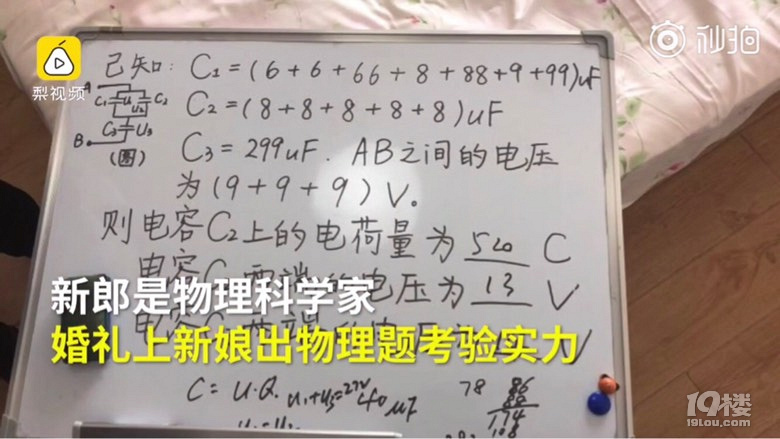 梨视频
秒拍
19楼
19Lou.com
已知: C₁=(6+6+66+8+88+9+99)uF
C₂=(8+8+8+8+8)uF
C₃=299uF. AB之间的电压
为(9+9+9)V。
A
C₁ U₁ U₂ C₂
C₃ U₃
B
(图)
则电容C₂上的电荷量为 520 C
电容C 两端的电压为 13 V
新郎是物理科学家
婚礼上新娘出物理题考验实力
C=U·Q. U₁+U₃=27V 40 uF
78 86
88
174
108